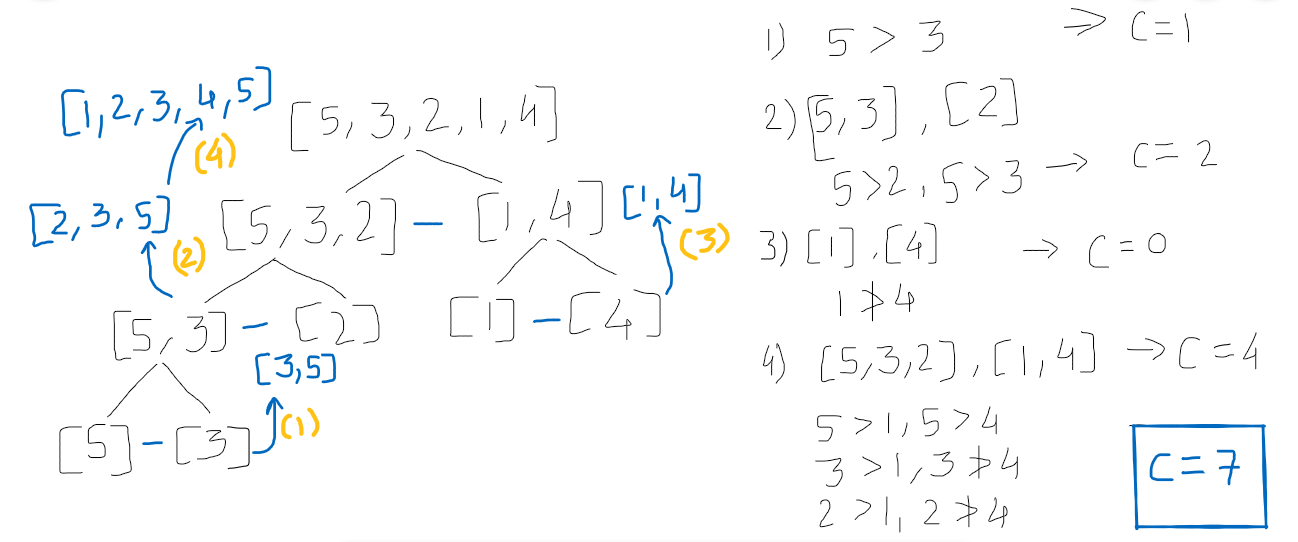 [1,2,3,4,5] [5,3,2,1,4]
(4)
[2,3,5] [5,3,2] - [1,4] [1,4]
(2) (3)
[5,3] - [2] [1] - [4]
[3,5]
[5] - [3] (1)
1) 5 > 3 => C=1
2) [5,3] , [2]
5>2, 5>3 → C=2
3) [1] , [4] → C=0
1 ≯ 4
4) [5,3,2] , [1,4] → C=4
5>1, 5>4
3>1, 3≯4
2>1, 2≯4
C=7